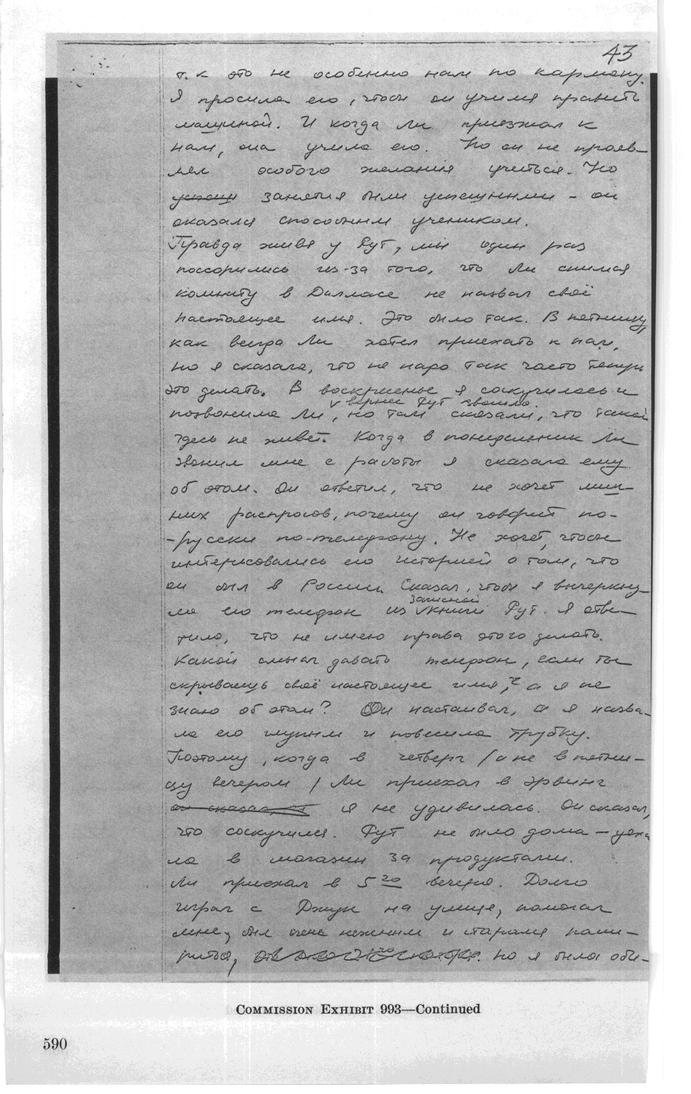 43
т.к это не особенно нам по карману.
Я просила его, чтобы он учился править
машиной. И когда Ли приезжал к
нам, она учила его. Но он не прояв-
лял особого желания учиться. Но
занятия были успешными – он
оказался способным учеником.
Правда живя у Рут, мы один раз
поссорились из-за того, что Ли снимая
комнату в Далласе не назвал своё
настоящее имя. Это было так. В пятницу,
как всегда Ли хотел приехать к нам,
но я сказала, что не надо так часто теперь
это делать. В воскрисенье я соскучилась и
вернее Рут звонила
позвонила Ли, но там сказали, что такой
здесь не живет. Когда в понидельник Ли
звонил мне с работы я сказала ему
об этом. Он ответил, что не хочет лиш-
них распросов, почему он говорит по-
-русски по-телефону. Не хочет, чтобы
интересовались его историей о том, что
он был в России. Сказал, чтобы я вычеркну-
записной
ла его телефон из книги Рут. Я отве-
тила, что не имею права этого делать.
Какой смысл давать телефон, если ты
скрываешь своё настоящее имя, а я не
знаю об этом? Он настаивал, а я назва-
ла его глупым и повесила трубку.
Поэтому, когда в четверг /а не в пятни-
цу вечером/ Ли приехал в Эрвинг
он сказал, я не удивилась. Он сказал,
что соскучился. Рут не было дома – уеха
ла в магазин за продуктами.
Ли приехал в 5 20 вечера. Долго
играл с Джун на улице, помогал
мне, был очень нежным и старался поми-
риться, но я была оби-
COMMISSION EXHIBIT 993—Continued
590